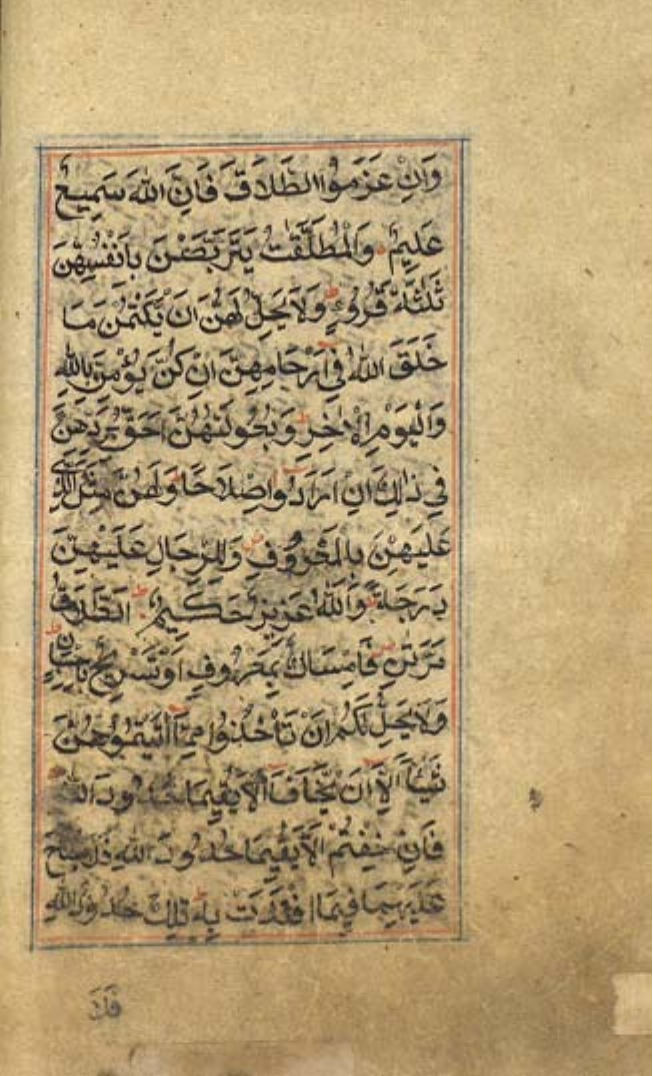 وَاِنْ عَزَمُوا الطَّلَاقَ فَاِنَّ اللهَ سَمِيعٌ
عَلِيمٌ وَالْمُطَلَّقٰتُ يَتَرَبَّصْنَ بِاَنْفُسِهِنَّ
ثَلٰثَةَ قُرُوءٍ ط وَلَا يَحِلُّ لَهُنَّ اَنْ يَكْتُمْنَ مَا
خَلَقَ اللهُ فِي اَرْحَامِهِنَّ اِنْ كُنَّ يُؤْمِنَّ بِاللهِ
وَالْيَوْمِ الْاٰخِرِ ط وَبُعُولَتُهُنَّ اَحَقُّ بِرَدِّهِنَّ
فِي ذٰلِكَ اِنْ اَرَادُوا اِصْلَاحًا ط وَلَهُنَّ مِثْلُ الَّذِي
عَلَيْهِنَّ بِالْمَعْرُوفِ ص وَلِلرِّجَالِ عَلَيْهِنَّ
دَرَجَةٌ ط وَاللهُ عَزِيزٌ حَكِيمٌ ط اَلطَّلَاقُ
مَرَّتٰنِ ص فَاِمْسَاكٌ بِمَعْرُوفٍ اَوْ تَسْرِيحٌ بِاِحْسَانٍ ط
وَلَا يَحِلُّ لَكُمْ اَنْ تَأْخُذُوا مِمَّا اٰتَيْتُمُوهُنَّ
شَيْئًا اِلَّا اَنْ يَخَافَا اَلَّا يُقِيمَا حُدُودَ اللهِ
فَاِنْ خِفْتُمْ اَلَّا يُقِيمَا حُدُودَ اللهِ فَلَا جُنَاحَ
عَلَيْهِمَا فِيمَا افْتَدَتْ بِهِ ط تِلْكَ حُدُودُ اللهِ
فَلَا